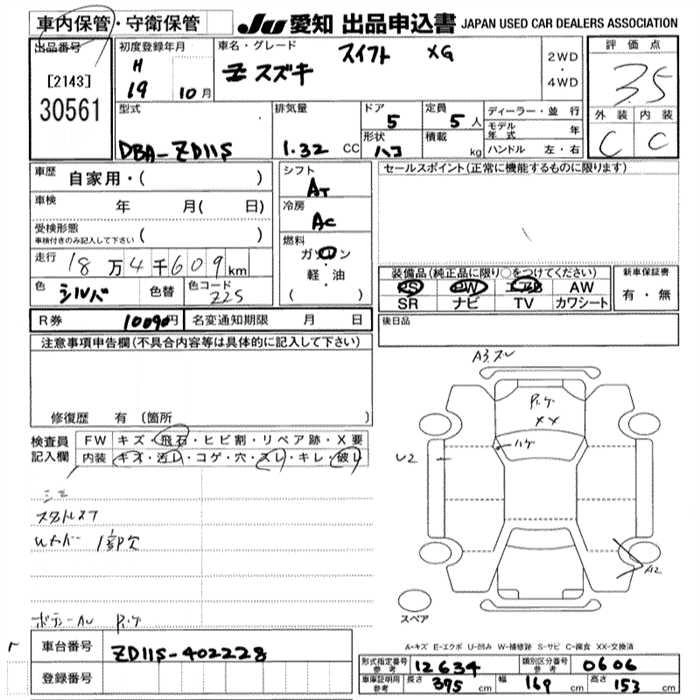 車内保管・守衛保管
JU 愛知 出品申込書 JAPAN USED CAR DEALERS ASSOCIATION
出品番号
[2143]
30561
初度登録年月
H
19 10月
車名・グレード
スイフト XG
スズキ
2WD
・
4WD
評価点
3.5
外装 内装
C C
型式
DBA-ZD11S
排気量
1.32 CC
ドア
5
形状
ハコ
定員
5人
積載
kg
ディーラー・並行
モデル年式 年
ハンドル 左・右
車歴
自家用・( )
車検
年 月( 日)
受検形態
車検付きのみ記入して下さい ( )
走行 18万4千609km
色 シルバ 色替 色コード Z2S
シフト
AT
冷房
AC
燃料
ガソリン
・
軽・油
( )
セールスポイント(正常に機能するものに限ります)
装備品(純正品に限り○をつけてください)
PS PW エアB AW
SR ナビ TV カワシート
新車保証書
有・無
R券 10090円 名変通知期限 月 日
後日品
注意事項申告欄(不具合内容等は具体的に記入して下さい)
修復歴 有(箇所
検査員記入欄
FW キズ・飛石・ヒビ割・リペア跡・X要
内装 キズ・汚レ・コゲ・穴・スレ・キレ・破レ
シミ
スタッドレス
1部欠
P.ケ
A3.スレ
P.ケ
XX
ハゲ
U2
A2
スペア
車台番号 ZD11S-402228
登録番号
A-キズ E-エクボ U-凹み W-補修跡 S-サビ C-腐食 XX-交換済
形式指定番号 参考 12634 類別区分番号 参考 0606
車庫証明用 参考 長さ 375 cm 幅 169 cm 高さ 153 cm